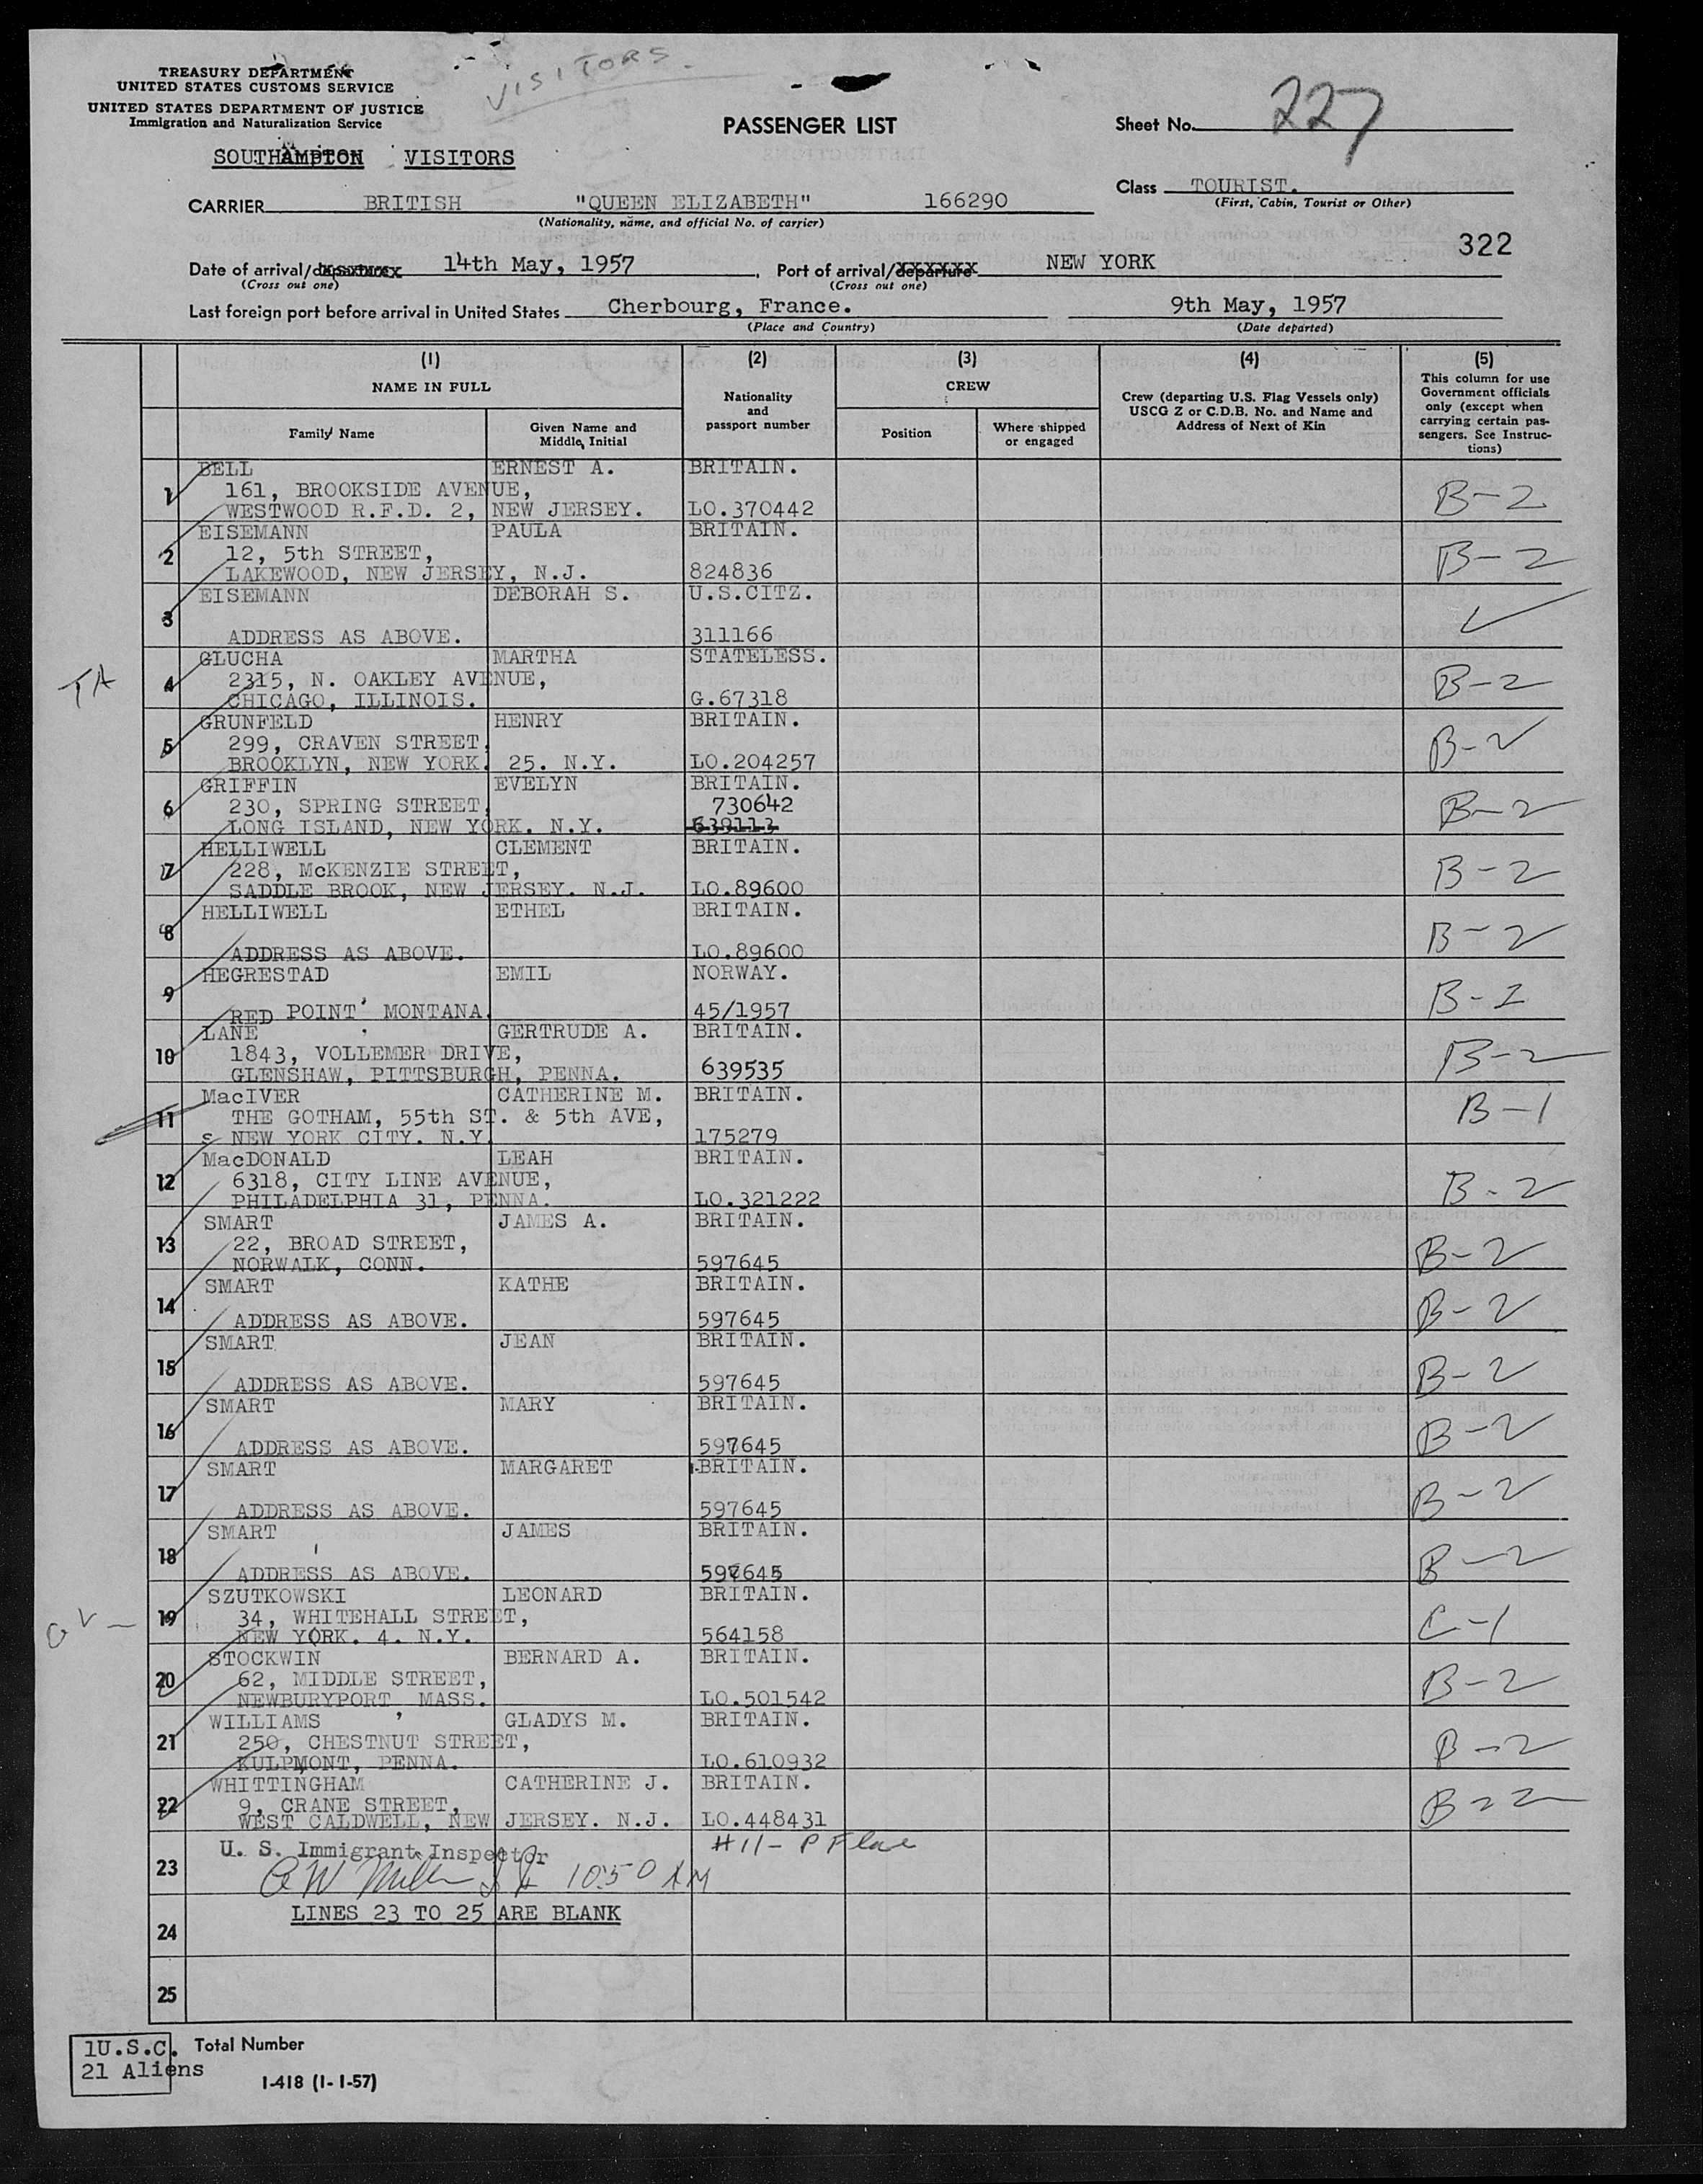 VISITORS.
TREASURY DEPARTMENT
UNITED STATES CUSTOMS SERVICE
UNITED STATES DEPARTMENT OF JUSTICE
Immigration and Naturalization Service
PASSENGER LIST
Sheet No. 227
SOUTHAMPTON VISITORS
Class TOURIST.
(First, Cabin, Tourist or Other)
CARRIER BRITISH "QUEEN ELIZABETH" 166290
(Nationality, name, and official No. of carrier)
322
Date of arrival/departure 14th May, 1957. Port of arrival/departure NEW YORK
(Cross out one) (Cross out one)
Last foreign port before arrival in United States Cherbourg, France. 9th May, 1957
(Place and Country) (Date departed)
(1) (2) (3) (4) (5)
NAME IN FULL
Family Name
Given Name and Middle Initial
Nationality and passport number
CREW
Position
Where shipped or engaged
Crew (departing U.S. Flag Vessels only)
USCG Z or C.D.B. No. and Name and
Address of Next of Kin
This column for use
Government officials
only (except when
carrying certain pas-
sengers. See Instruc-
tions)
1 BELL ERNEST A. BRITAIN.
161, BROOKSIDE AVENUE,
WESTWOOD R.F.D. 2, NEW JERSEY. LO.370442 B-2
2 EISEMANN PAULA BRITAIN.
12, 5th STREET,
LAKEWOOD, NEW JERSEY, N.J. 824836 B-2
3 EISEMANN DEBORAH S. U.S.CITZ.
ADDRESS AS ABOVE. 311166
TA 4 GLUCHA MARTHA STATELESS.
2315, N. OAKLEY AVENUE,
CHICAGO, ILLINOIS. G.67318 B-2
5 GRUNFELD HENRY BRITAIN.
299, CRAVEN STREET,
BROOKLYN, NEW YORK. 25. N.Y. LO.204257 B-2
6 GRIFFIN EVELYN BRITAIN.
230, SPRING STREET, 730642
LONG ISLAND, NEW YORK. N.Y. 639113 B-2
7 HELLIWELL CLEMENT BRITAIN.
228, McKENZIE STREET,
SADDLE BROOK, NEW JERSEY. N.J. LO.89600 B-2
8 HELLIWELL ETHEL BRITAIN.
ADDRESS AS ABOVE. LO.89600 B-2
9 HEGRESTAD EMIL NORWAY.
RED POINT' MONTANA. 45/1957 B-2
10 LANE GERTRUDE A. BRITAIN.
1843, VOLLEMER DRIVE,
GLENSHAW, PITTSBURGH, PENNA. 639535 B-2
11 MacIVER CATHERINE M. BRITAIN.
THE GOTHAM, 55th ST. & 5th AVE,
NEW YORK CITY. N.Y. 175279 B-1
12 MacDONALD LEAH BRITAIN.
6318, CITY LINE AVENUE,
PHILADELPHIA 31, PENNA. LO.321222 B-2
13 SMART JAMES A. BRITAIN.
22, BROAD STREET,
NORWALK, CONN. 597645 B-2
14 SMART KATHE BRITAIN.
ADDRESS AS ABOVE. 597645 B-2
15 SMART JEAN BRITAIN.
ADDRESS AS ABOVE. 597645 B-2
16 SMART MARY BRITAIN.
ADDRESS AS ABOVE. 597645 B-2
17 SMART MARGARET BRITAIN.
ADDRESS AS ABOVE. 597645 B-2
18 SMART JAMES BRITAIN.
ADDRESS AS ABOVE. 597645 B-2
19 SZUTKOWSKI LEONARD BRITAIN.
34, WHITEHALL STREET,
NEW YORK. 4. N.Y. 564158 C-1
20 STOCKWIN BERNARD A. BRITAIN.
62, MIDDLE STREET,
NEWBURYPORT, MASS. LO.501542 B-2
21 WILLIAMS GLADYS M. BRITAIN.
250, CHESTNUT STREET,
KULPMONT, PENNA. LO.610932 B-2
22 WHITTINGHAM CATHERINE J. BRITAIN.
9, CRANE STREET,
WEST CALDWELL, NEW JERSEY. N.J. LO.448431 B-2
23 U. S. Immigrant Inspector #11-
10:50 AM
24 LINES 23 TO 25 ARE BLANK
25
1U.S.C. Total Number
21 Aliens
I-418 (1-1-57)